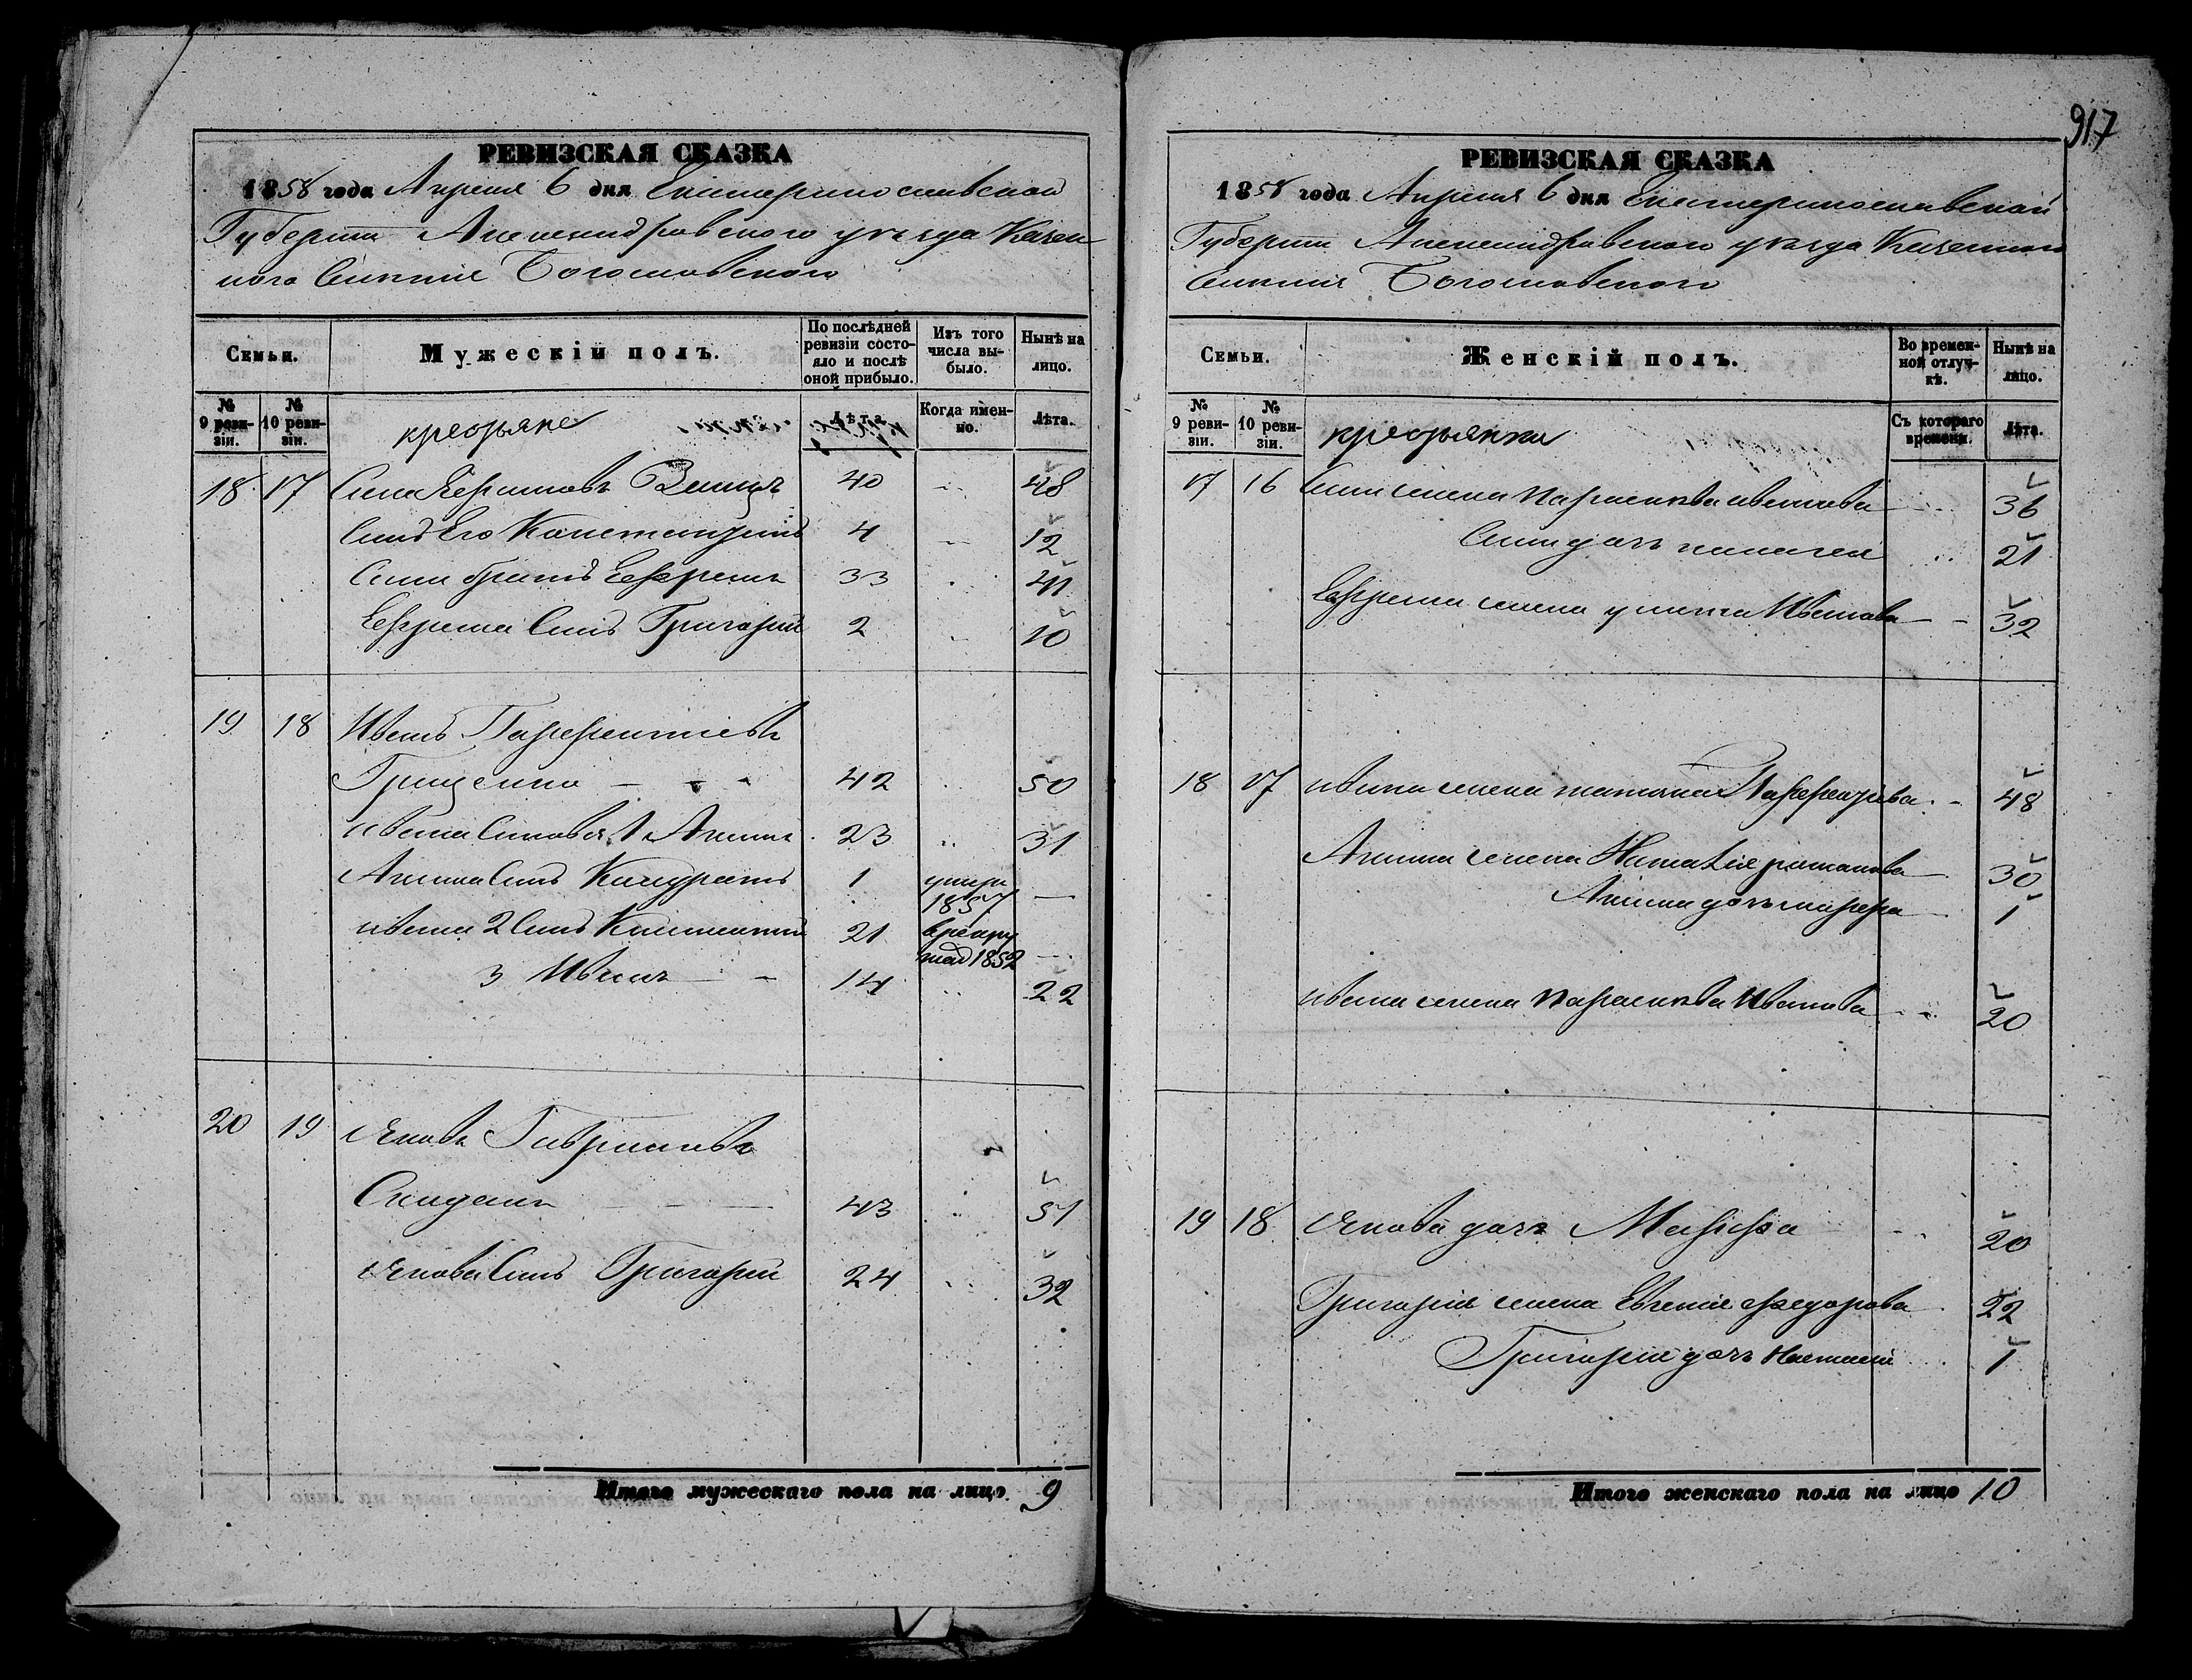 РЕВИЗСКАЯ СКАЗКА
1858 года Апреля 6 дня Екатеринославской
Губернии Александровского уѣзда Казен
ного Селения Богословского
Семьи.
Мужескій полъ.
По послѣдней ревизіи состояло и послѣ оной прибыло.
Изъ того числа выбыло.
Нынѣ на лицо.
№ 9 ревизіи.
№ 10 ревизіи.
крестьяне
Лѣта
Когда именно.
Лѣта.
18 17 Ефимовъ 40 48
Синъ Его Константинъ 4 12
братъ Ефремъ 33 41
Ефрема Синъ Григорий 2 10
19 18 Иванъ Парфентиевъ
Грищенко 42 50
Ивана Синовья 1 Акимъ 23 31
Акима Синъ Кандратъ 1 умеръ 1857 —
Ивана 2 Синъ Климентий 21 врекру
тað 1852 —
3 Иванъ 14 22
20 19 Яковъ Гавриловъ
Скиданъ 43 51
Якова Синъ Григорий 24 32
Итого мужескаго пола на лицо 9
917
РЕВИЗСКАЯ СКАЗКА
1858 года Апреля 6 дня Екатеринославской
Губернии Александровского уѣзда Казенного
Селения Богословского
Семьи.
Женскій полъ.
Во временной отлучкѣ.
Нынѣ на лицо.
№ 9 ревизіи.
№ 10 ревизіи.
крестьянки
Съ котораго времени.
Лѣта.
17 16 жена Параскева Иванова 36
дочь Пелагея 21
Ефрема жена Улияна Иванова 32
18 17 Ивана жена Татияна Парфентиева 48
Акима жена Наталия Романова 30
Акима дочь Марфа 1
Ивана жена Параскева Иванова 20
19 18 Якова дочь Марфа 20
Григория жена Евгения Федорова 22
Григория дочь Настасия 1
Итого женскаго пола на лицо 10